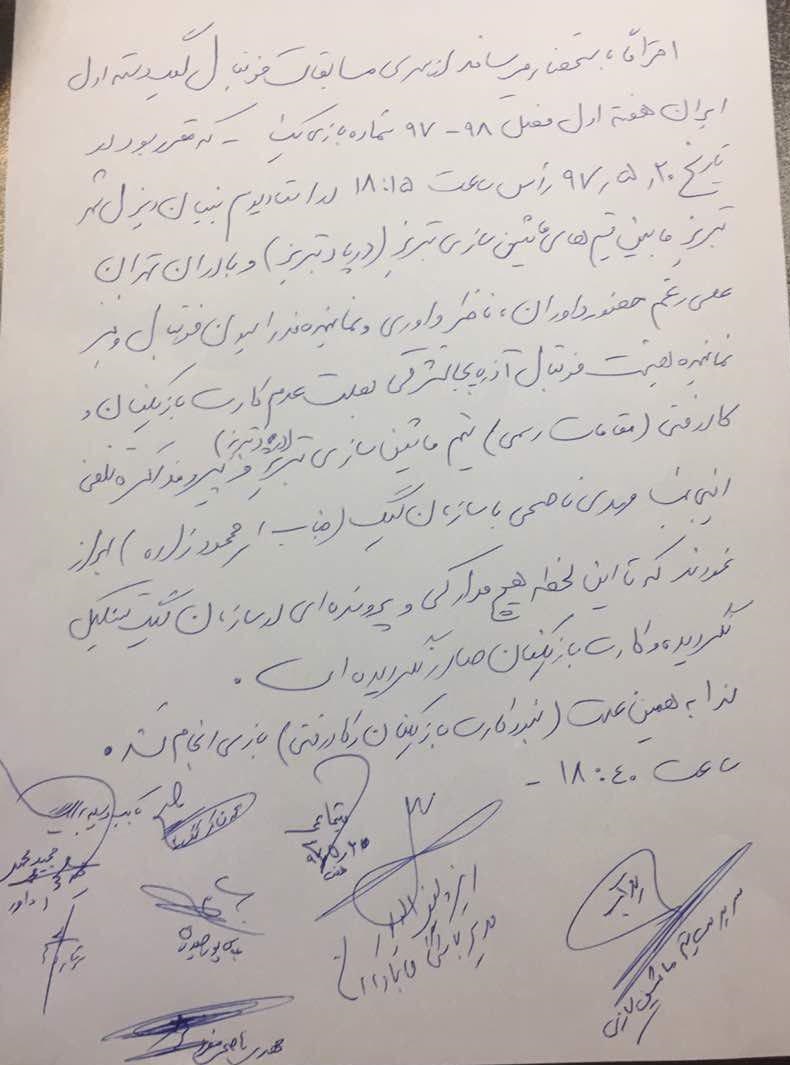 احتراماً باستحضار میرساند از سری مسابقات فوتبال لیگ دسته اول
ایران هفته اول فصل ۹۸-۹۷ شماره بازی - که مقرر بود در
تاریخ ۹۷٫۵٫۲۰ رأس ساعت ۱۸:۱۵ در استادیوم بنیان دیزل شهر
تبریز مابین تیم های ماشین سازی تبریز و بادران تهران
علی رغم حضور داوران، ناظر داوری و نماینده فدراسیون فوتبال و نیز
نماینده هیئت فوتبال آذربایجانشرقی بعلت عدم کارت بازیکنان و
کادرفنی (مقامات رسمی) تیم ماشین سازی تبریز و پیرو مذاکره تلفنی
اینجانب مهدی ناصحی با سازمان لیگ (جناب محمودزاده) ابراز
نمودند که تا این لحظه هیچ مدارکی و پرونده ای در سازمان لیگ تشکیل
نگردیده و کارت بازیکنان صادر نگردیده است.
لذا به همین علت (نبود کارت بازیکنان و کادرفنی) بازی انجام نشد.
ساعت ۱۸:۴۰ -
سرپرست تیم ماشین سازی